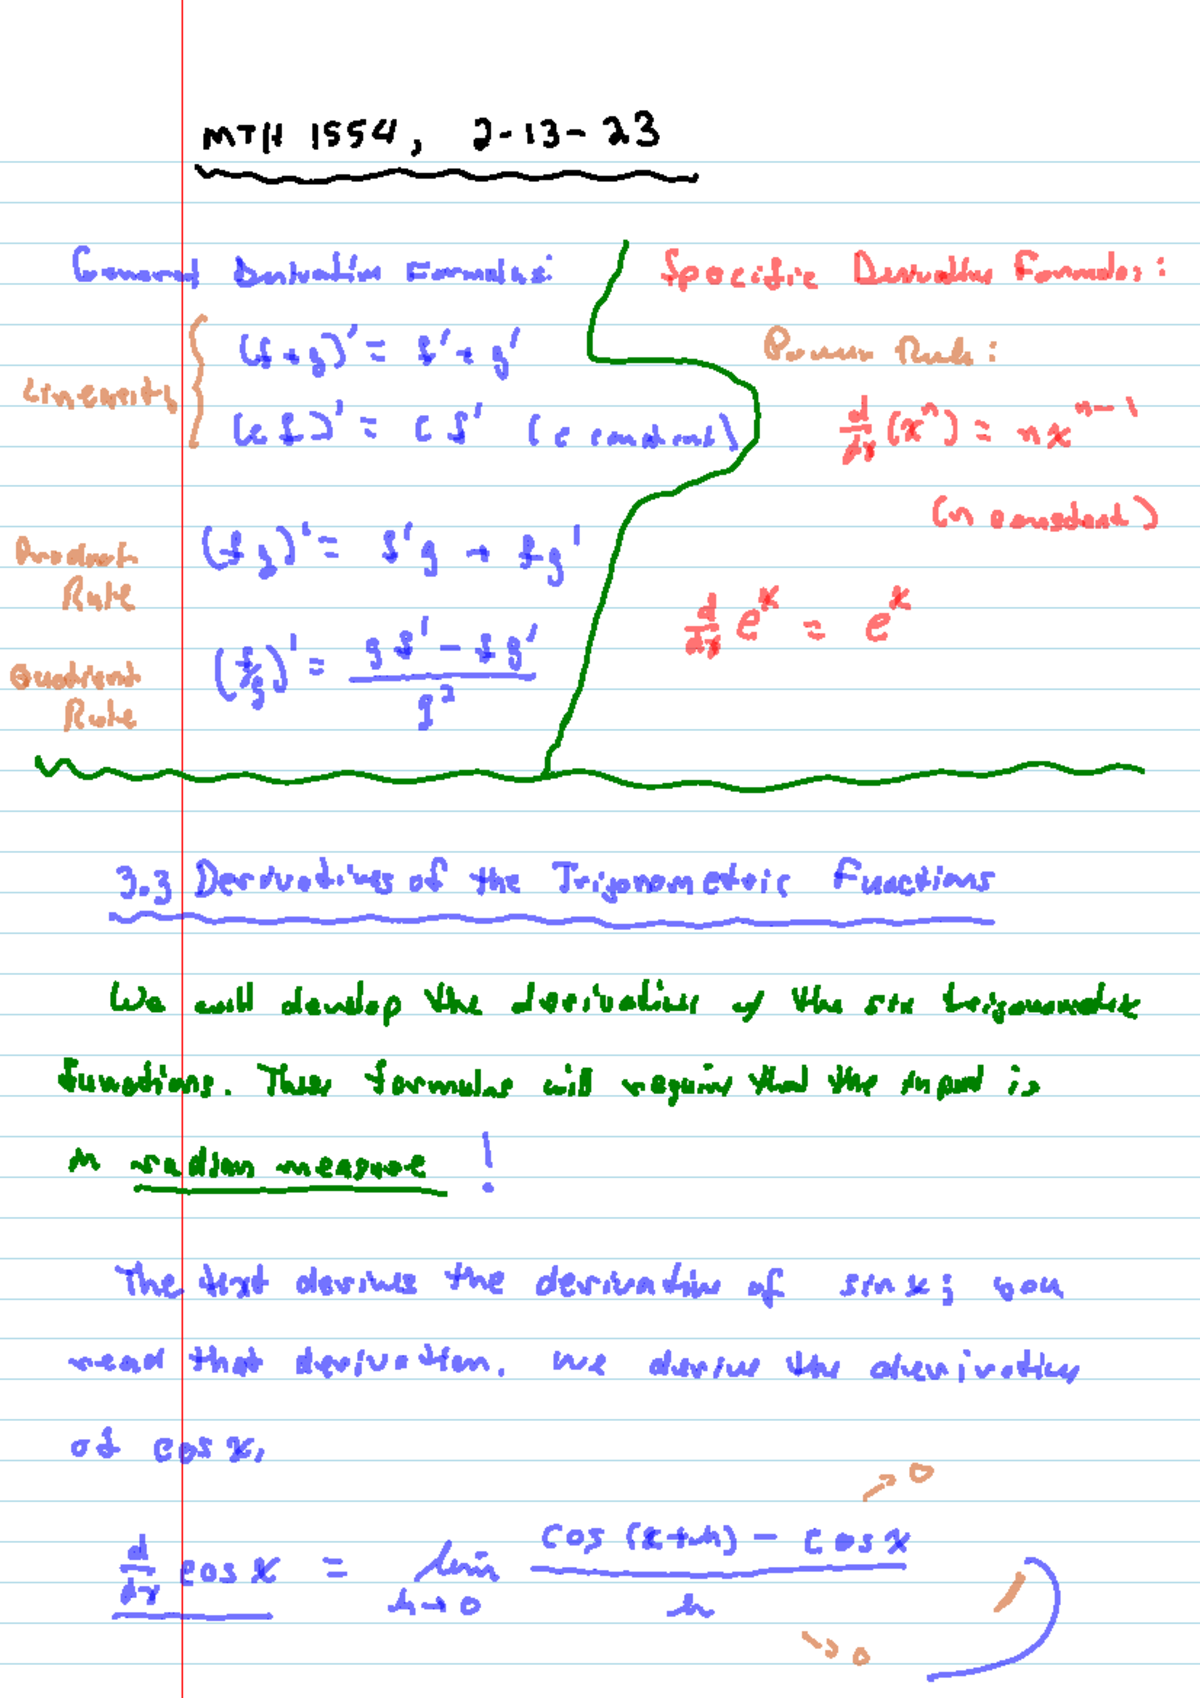 MTH 1554, 2-13-23
General Derivative Formulas:
Linearity
(f + g)' = f' + g'
(c f)' = c f' (c constant)
Product Rule
(f g)' = f'g + fg'
Quotient Rule
(f/g)' = (g f' - f g') / g²
Specific Derivative Formulas:
Power Rule:
d/dx (xⁿ) = n xⁿ⁻¹
(n constant)
d/dx eˣ = eˣ
3.3 Derivatives of the Trigonometric Functions
We will develop the derivatives of the six trigonometric
functions. These formulas will require that the input is
in radian measure !
The text derives the derivative of sin x; you
read that derivation. We derive the derivative
of cos x.
d/dx cos x = lim h→0 (cos (x+h) - cos x) / h
→ 0
→ 0